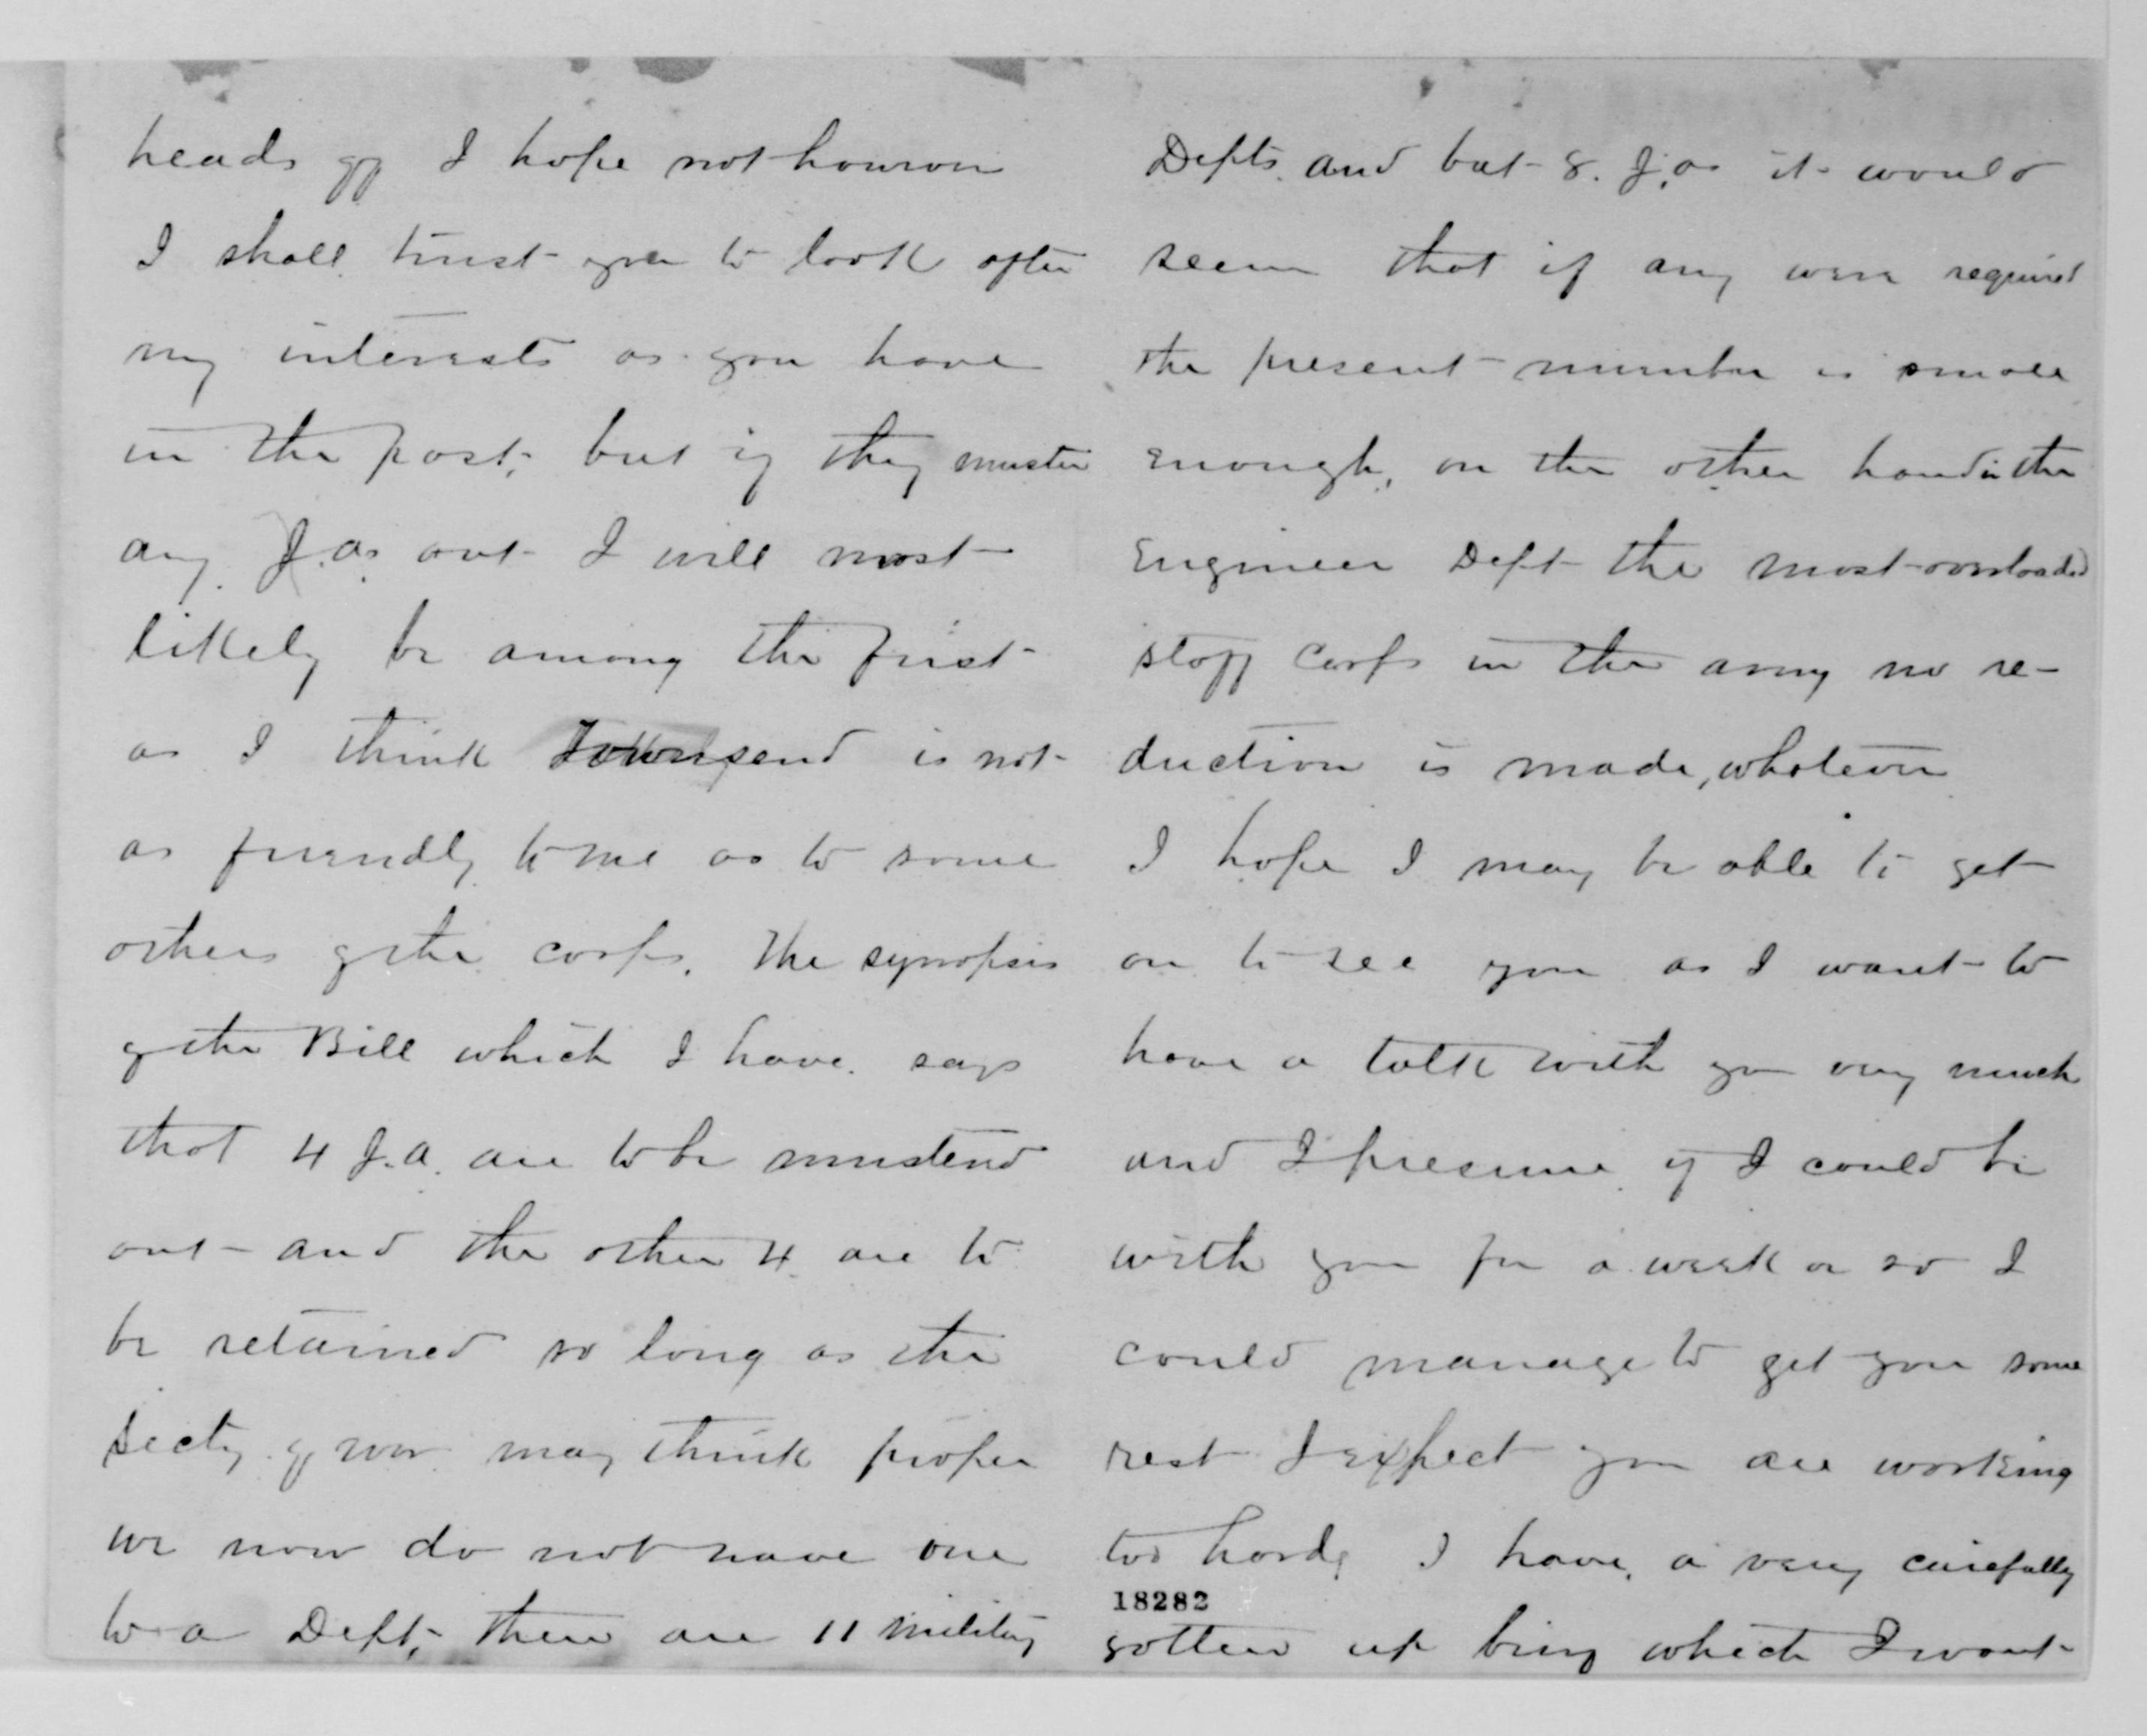 heads off I hope not however
I shall trust you to look after
my interests as you have
in the past, but if they muster
any J.As out I will most
likely be among the first
as I think Townsend is not
as friendly to me as to some
others of the corps. The synopsis
of the Bill which I have says
that 4 J.A. are to be mustered
out and the other 4 are to
be retained so long as the
Secty of War may think proper
we now do not have one
to a Dept, there are 11 military
Depts. and but 8. J.As it would
seem that if any were required
the present number is small
enough, on the other hand in the
Engineer Dept the most overloaded
staff corps in the army no re-
duction is made, whatever
I hope I may be able to get
on to see you as I want to
have a talk with you very much
and I presume if I could be
with you for a week or so I
could manage to get you some
rest I expect you are working
too hard. I have a very carefully
18282
gotten up which I want